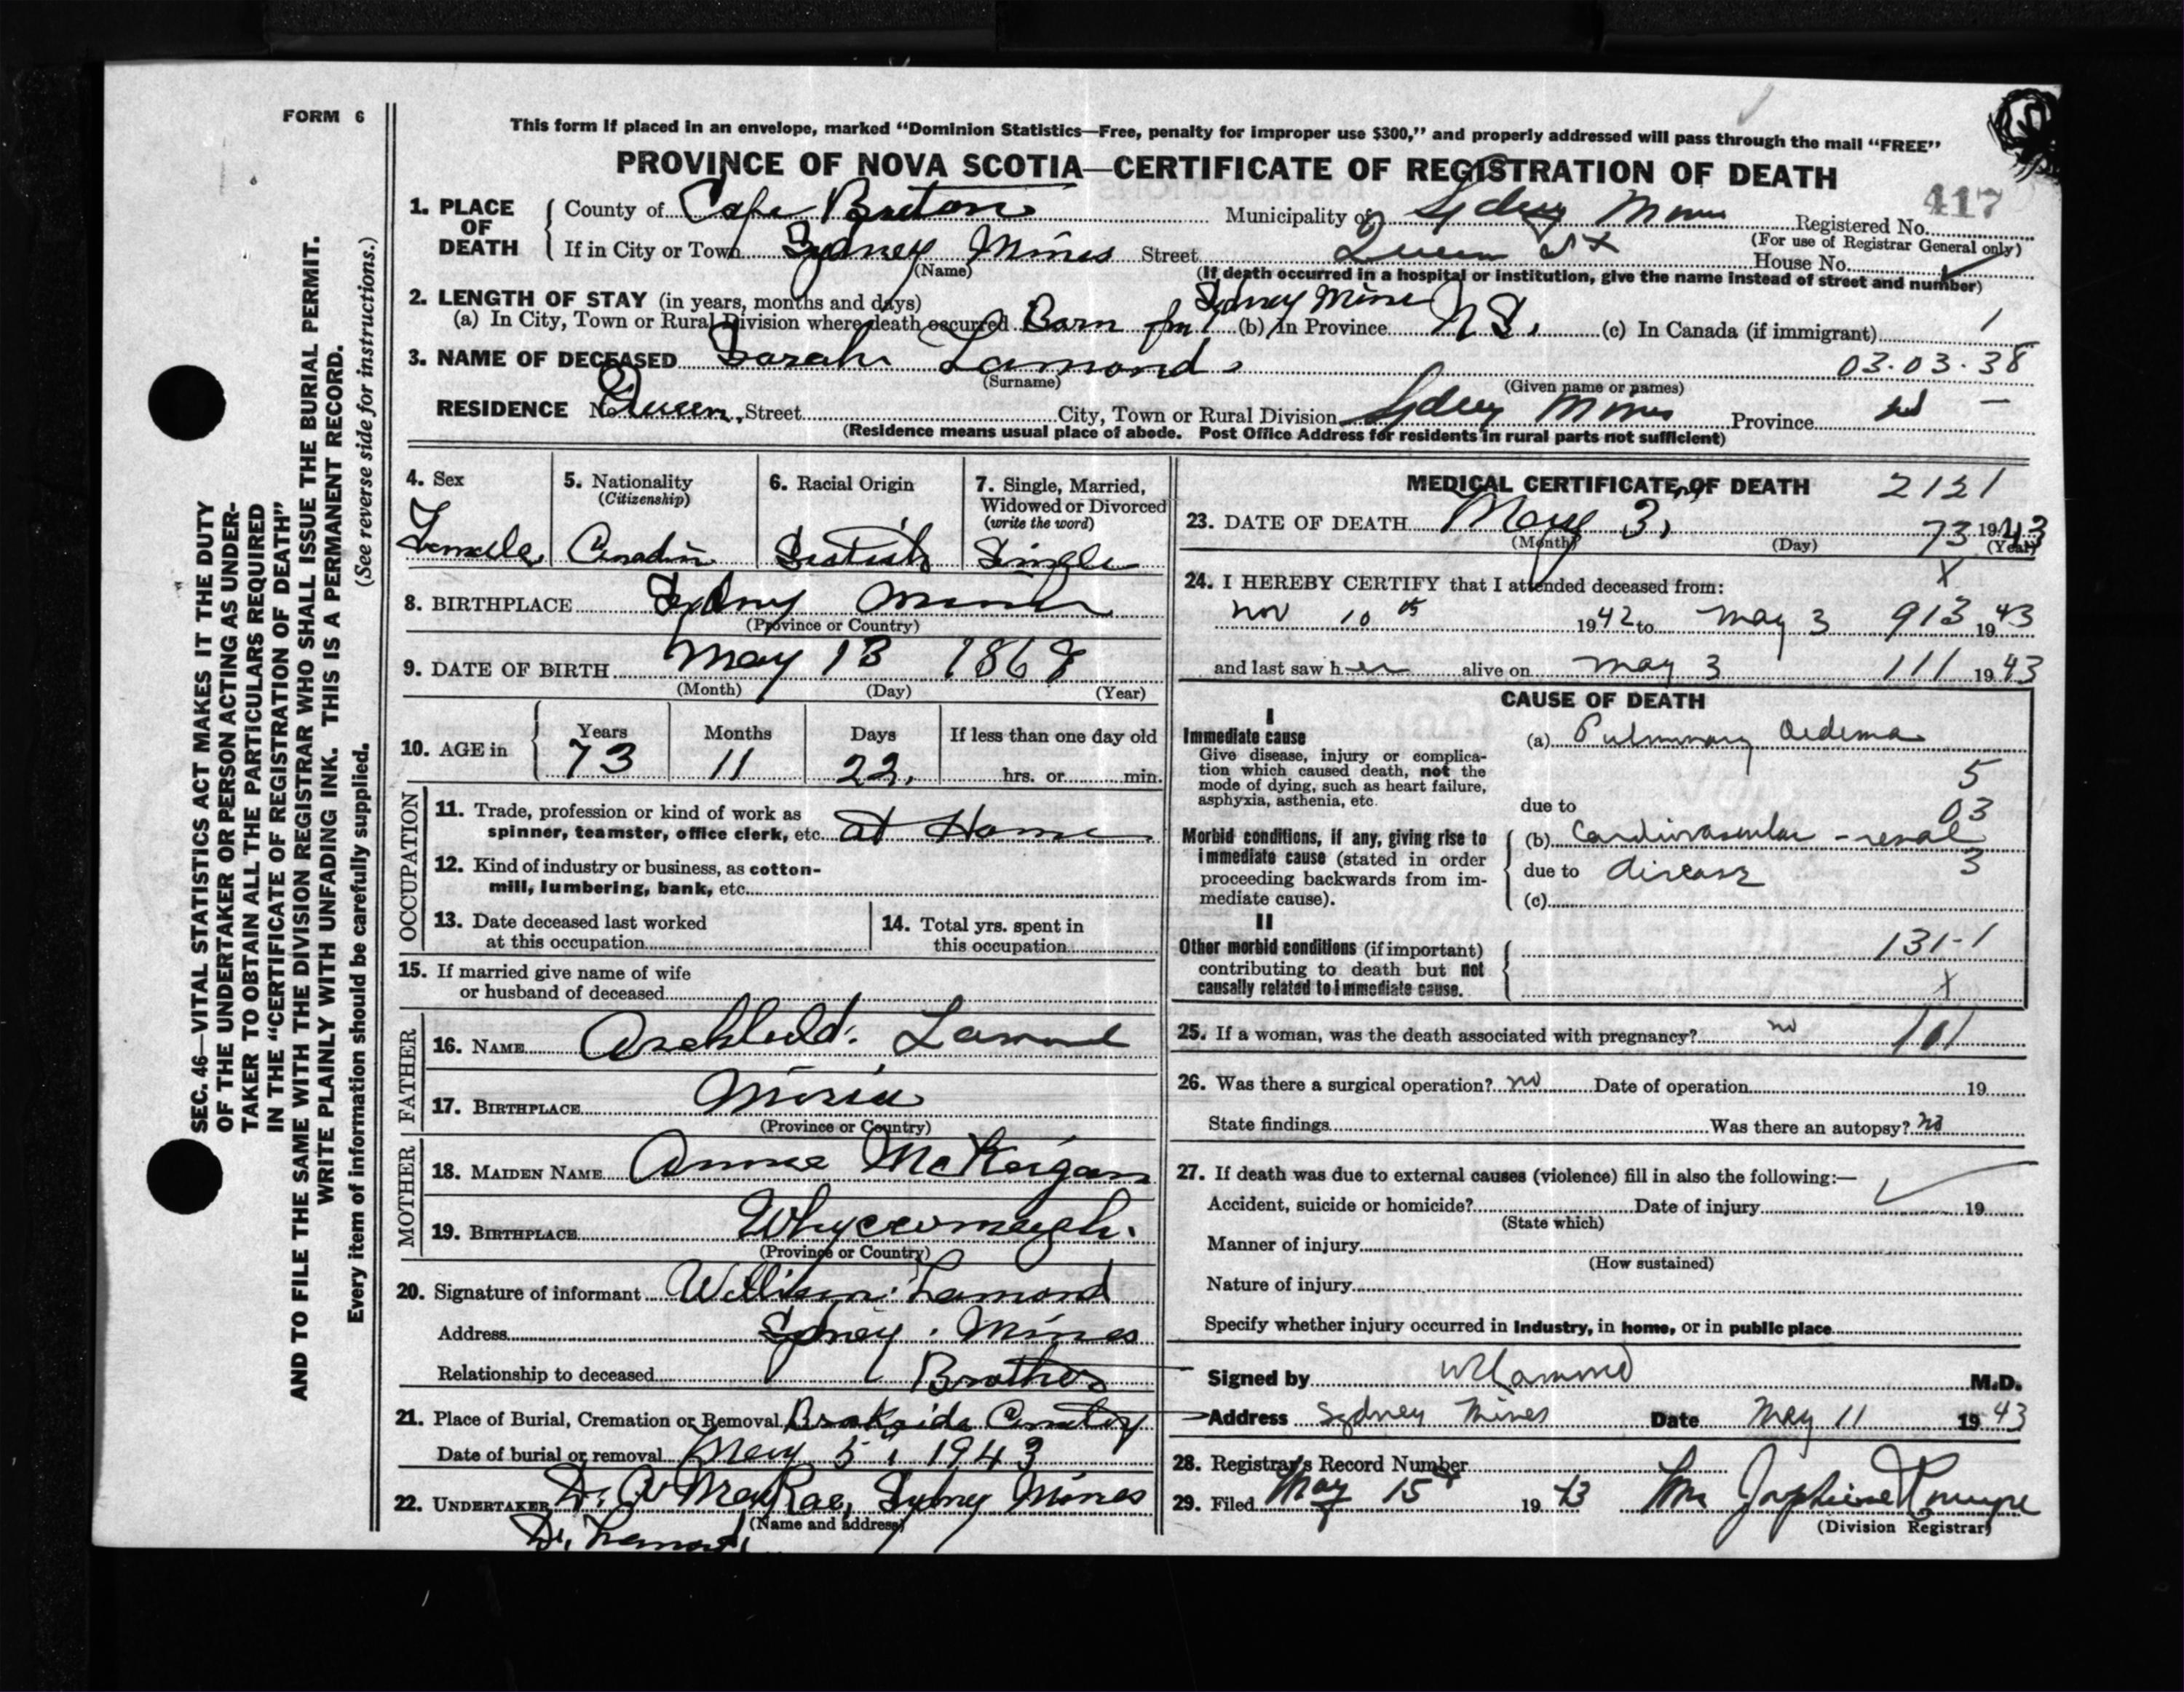 FORM 6
SEC. 46—VITAL STATISTICS ACT MAKES IT THE DUTY
OF THE UNDERTAKER OR PERSON ACTING AS UNDER-
TAKER TO OBTAIN ALL THE PARTICULARS REQUIRED
IN THE "CERTIFICATE OF REGISTRATION OF DEATH"
AND TO FILE THE SAME WITH THE DIVISION REGISTRAR WHO SHALL ISSUE THE BURIAL PERMIT.
WRITE PLAINLY WITH UNFADING INK. THIS IS A PERMANENT RECORD.
Every item of information should be carefully supplied. (See reverse side for instructions.)
This form if placed in an envelope, marked "Dominion Statistics—Free, penalty for improper use $300," and properly addressed will pass through the mail "FREE"
PROVINCE OF NOVA SCOTIA—CERTIFICATE OF REGISTRATION OF DEATH
417
1. PLACE OF DEATH County of Cape Breton Municipality of Sydney Mines Registered No.
(For use of Registrar General only)
If in City or Town Sydney Mines Street Queen St House No.
(Name) (If death occurred in a hospital or institution, give the name instead of street and number)
2. LENGTH OF STAY (in years, months and days)
(a) In City, Town or Rural Division where death occurred Born in Sydney Mines (b) In Province N S. (c) In Canada (if immigrant) 1
3. NAME OF DECEASED Sarah Lamond 03.03.38
(Surname) (Given name or names)
RESIDENCE No. Queen, Street City, Town or Rural Division Sydney Mines Province
(Residence means usual place of abode. Post Office Address for residents in rural parts not sufficient)
4. Sex
Female
5. Nationality
(Citizenship)
Canadin
6. Racial Origin
Scotish
7. Single, Married,
Widowed or Divorced
(write the word)
Single
8. BIRTHPLACE Sydney Mines
(Province or Country)
9. DATE OF BIRTH May 13 1868
(Month) (Day) (Year)
10. AGE in Years Months Days If less than one day old
73 11 22. hrs. or min.
OCCUPATION
11. Trade, profession or kind of work as
spinner, teamster, office clerk, etc. at Home
12. Kind of industry or business, as cotton-
mill, lumbering, bank, etc.
13. Date deceased last worked
at this occupation
14. Total yrs. spent in
this occupation
15. If married give name of wife
or husband of deceased
FATHER
16. NAME Archibald. Lamond
17. BIRTHPLACE Miria
(Province or Country)
MOTHER
18. MAIDEN NAME Annie McKeigan
19. BIRTHPLACE Whycocomagh.
(Province or Country)
20. Signature of informant William Lamond
Address Sydney Mines
Relationship to deceased Brother
21. Place of Burial, Cremation or Removal Brookside Cemetery
Date of burial or removal May 5, 1943
22. UNDERTAKER MacRae, Sydney Mines
(Name and address)
MEDICAL CERTIFICATE OF DEATH 2121
23. DATE OF DEATH May 3, 73 1943
(Month) (Day) (Year)
24. I HEREBY CERTIFY that I attended deceased from: X
Nov 10th 1942 to May 3 913 1943
and last saw her alive on May 3 111 1943
CAUSE OF DEATH
I
Immediate cause
Give disease, injury or complica-
tion which caused death, not the
mode of dying, such as heart failure,
asphyxia, asthenia, etc.
(a) Pulmonary Oedema
5
due to 03
Morbid conditions, if any, giving rise to
immediate cause (stated in order
proceeding backwards from im-
mediate cause).
(b) Cardiovascular - renal
due to disease 3
(c)
II
Other morbid conditions (if important)
contributing to death but not
causally related to immediate cause.
131-1
X
25. If a woman, was the death associated with pregnancy? no 101
26. Was there a surgical operation? no Date of operation 19
State findings Was there an autopsy? no
27. If death was due to external causes (violence) fill in also the following:—
Accident, suicide or homicide? Date of injury 19
(State which)
Manner of injury
(How sustained)
Nature of injury
Specify whether injury occurred in Industry, in home, or in public place
Signed by Lamond M.D.
Address Sydney Mines Date May 11 1943
28. Registrar's Record Number
29. Filed May 15 1943 Josephine
(Division Registrar)